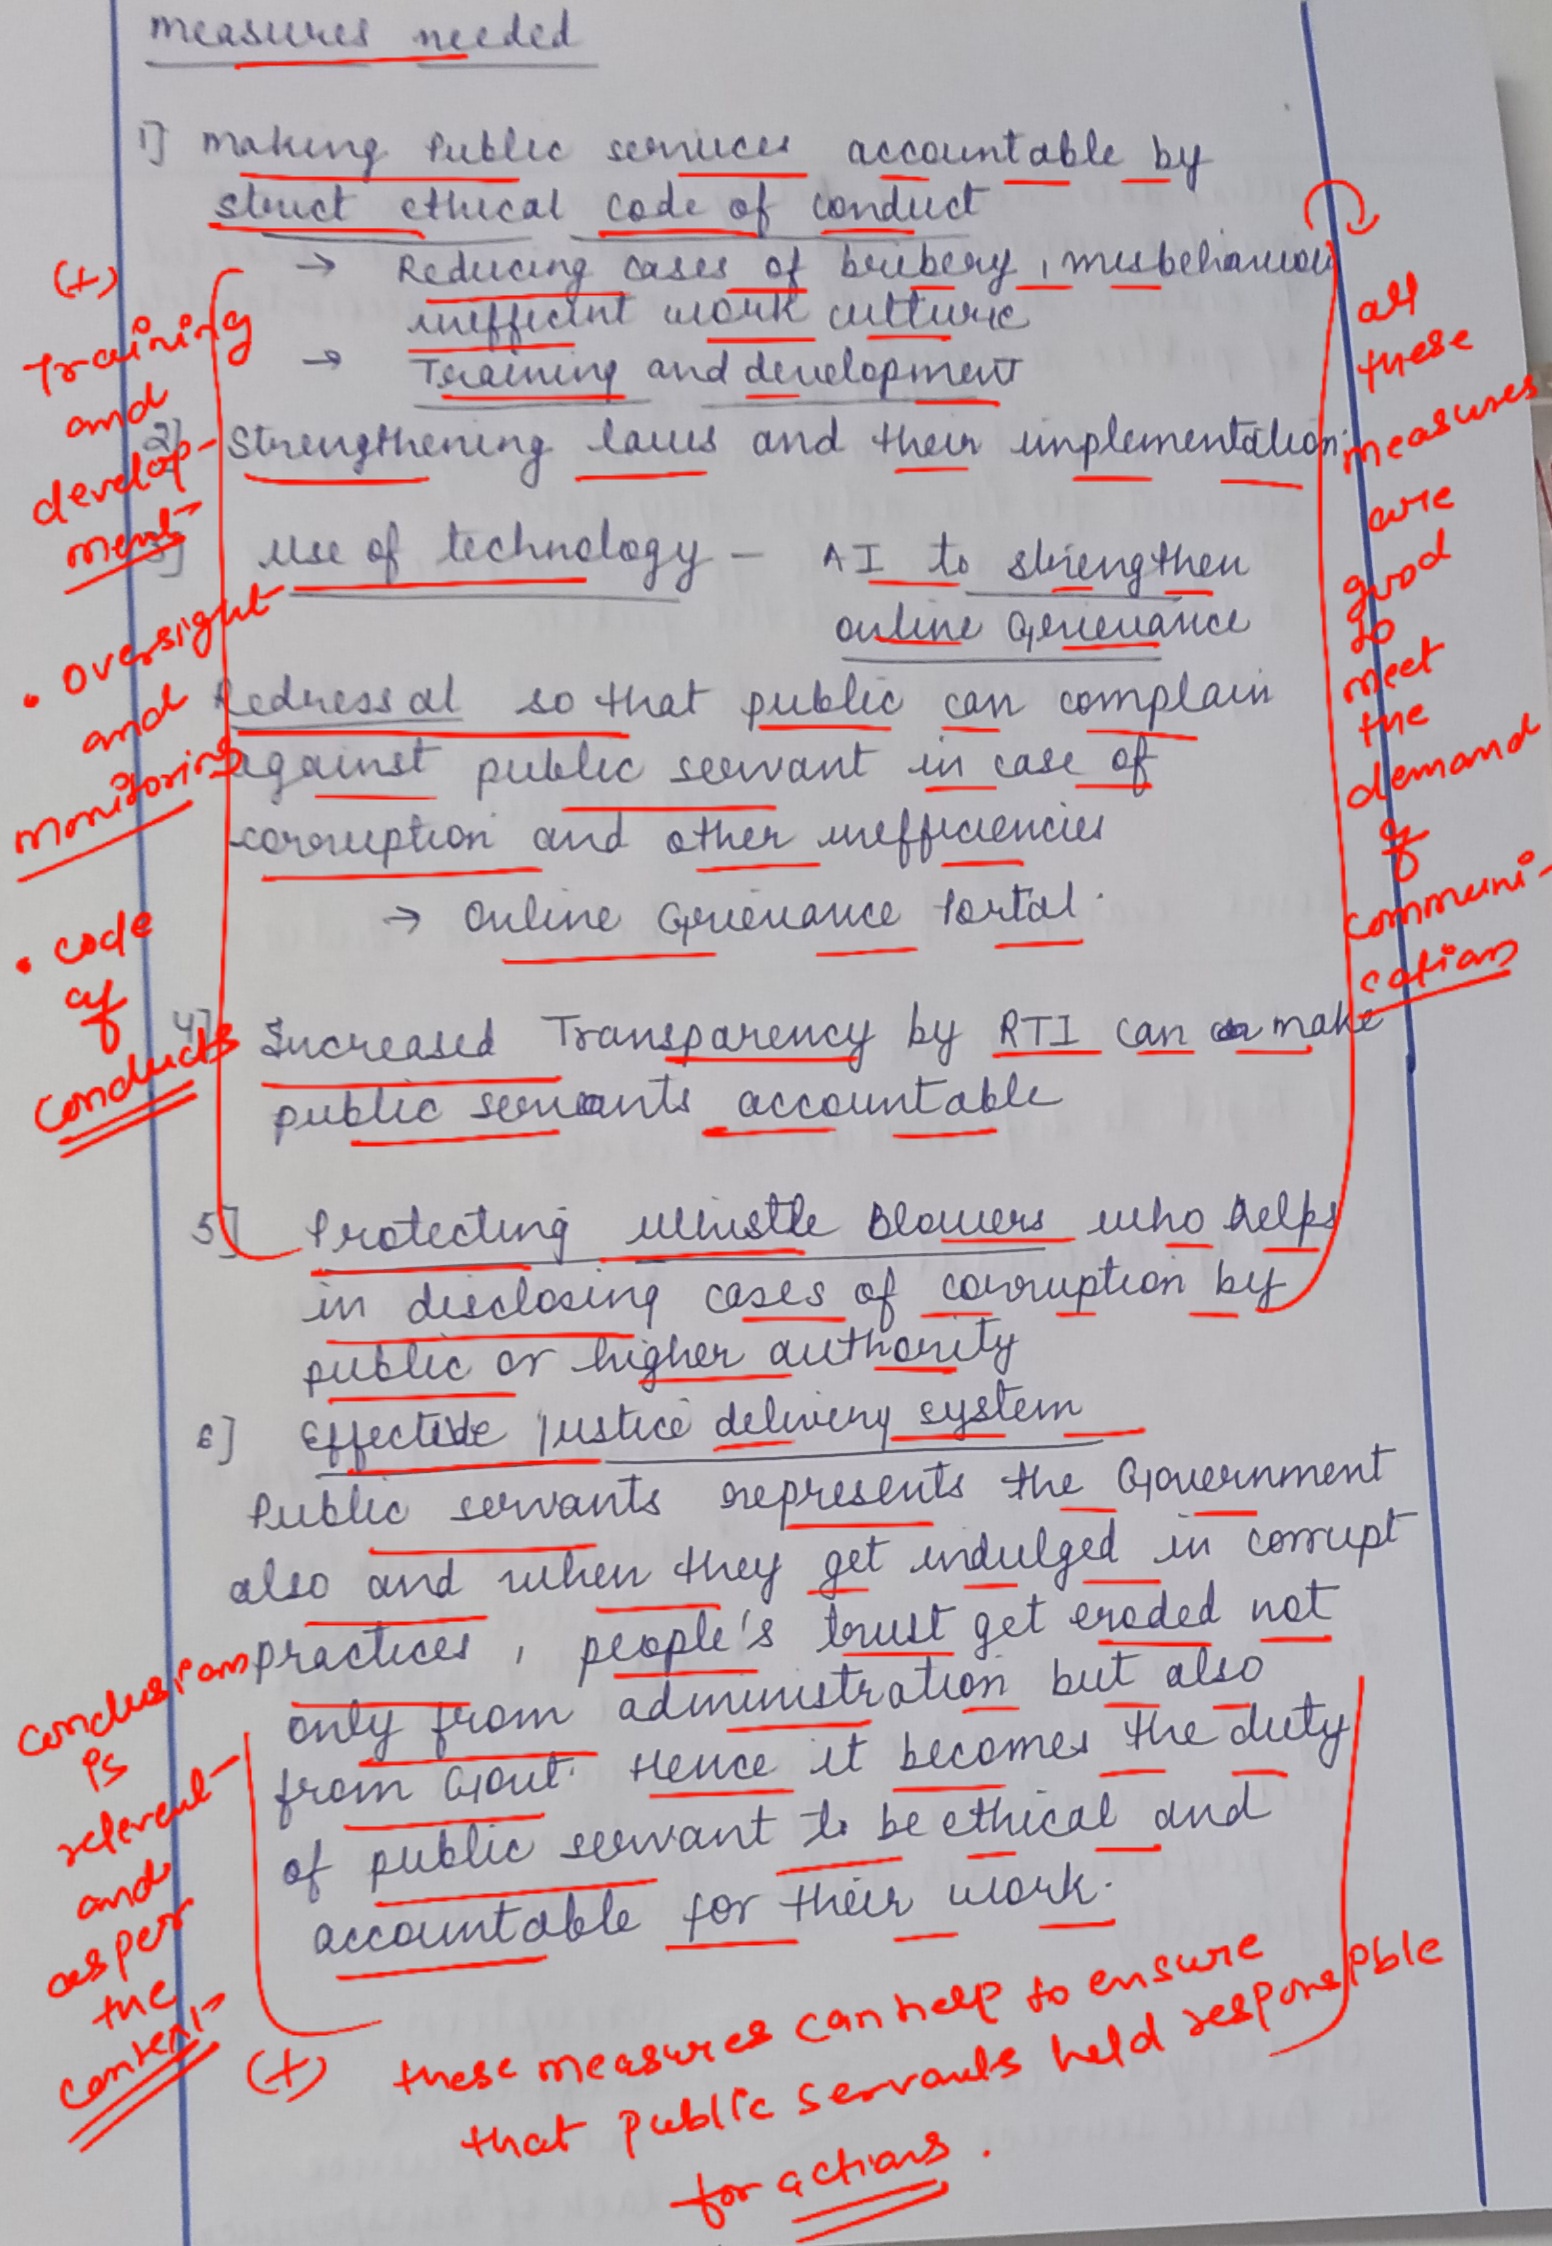 measures needed
1] making Public services accountable by
strict ethical code of conduct
→ Reducing cases of bribery, misbehaviour
inefficient work culture
→ Training and development
2] Strengthening laws and their implementation.
3] Use of technology - AI to strengthen
online Grievance
Redressal so that public can complain
against public servant in case of
corruption and other inefficiencies
→ Online Grievance Portal.
4] Increased Transparency by RTI can make
public servants accountable
5] Protecting whistle Blowers who helps
in disclosing cases of corruption by
public or higher authority
6] Effective justice delivery system
Public servants represents the Government
also and when they get indulged in corrupt
practices, people's trust get eroded not
only from administration but also
from Govt. Hence it becomes the duty
of public servant to be ethical and
accountable for their work.
(+)
Training
and
develop-
ment
• oversight
and
monitoring
• code
of
conducts
all
these
measures
are
good
to
meet
the
demand
of
communi-
cations
conclusion
is
relevent
and
as per
the
content
(+) these measures can help to ensure
that public servants held responsible
for actions.